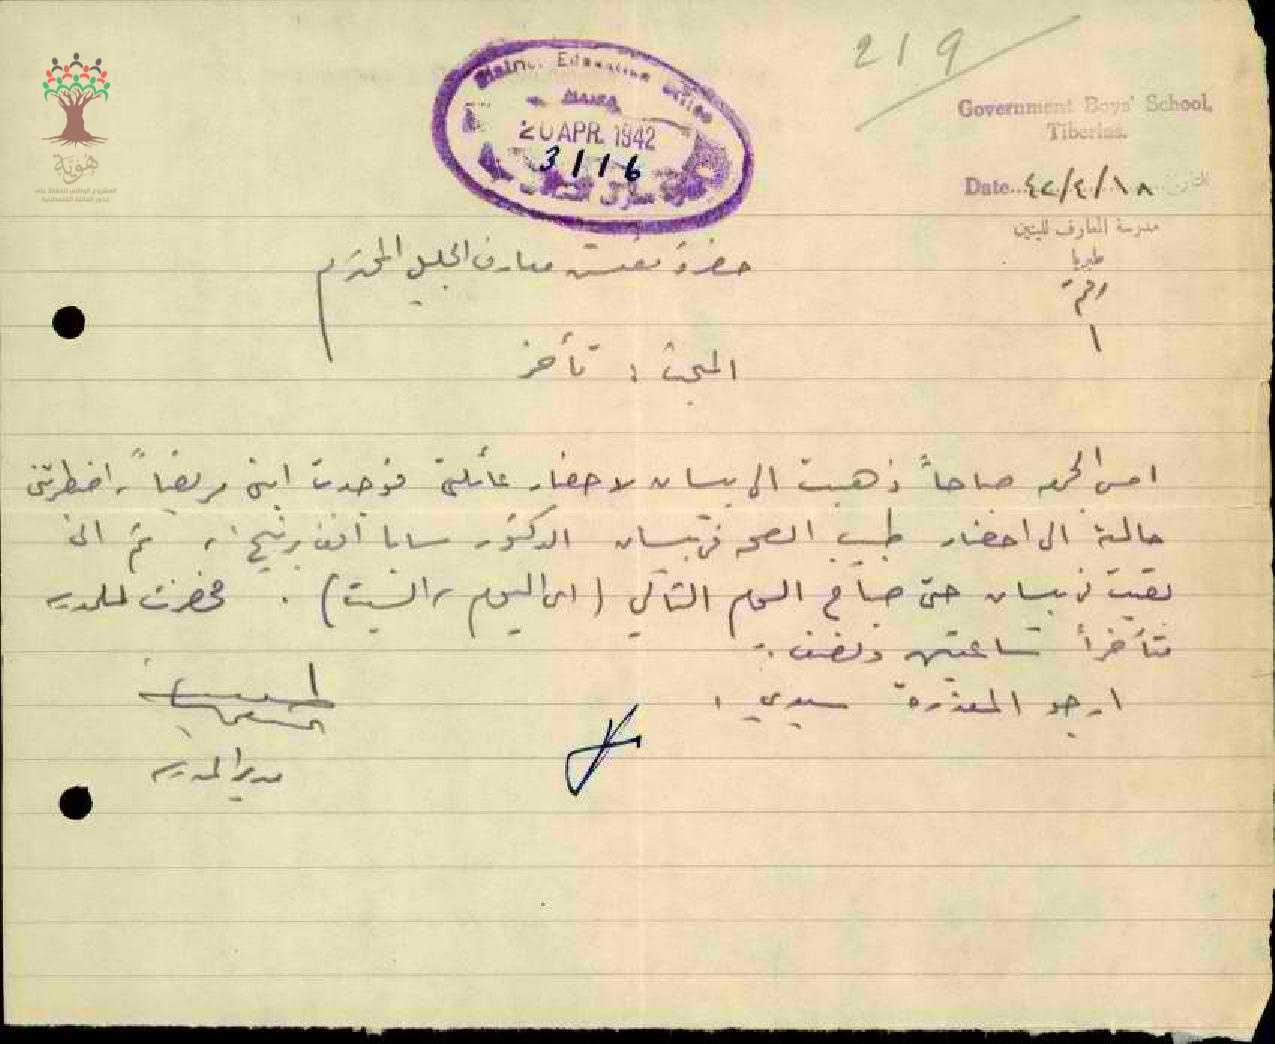 219
District Education Office
HAIFA
20 APR. 1942
3116
Government Boys' School,
Tiberias.
Date.. ٤٢/٤/١٨ التاريخ
مدرسة المعارف للبنين
طبريا
١
هوية
المشروع الوطني للحفاظ على
جذور العائلة الفلسطينية
حضرة مفتش معارف الجليل المحترم
المبحث : تأخر
امس الجمعه صباحاً ذهبت الى بيسان لاحضار عائلتي فوجدت ابني مريضاً، اضطرتني
حالته الى احضار طبيب الصحه في بيسان الدكتور سابا افندي، ثم اني
بقيت في بيسان حتى صباح اليوم التالي (اي اليوم، السبت) . فحضرت للمدرسه
متأخراً ساعتين ونصف .
ارجو المعذرة سيدي ،
مدير المدرسه